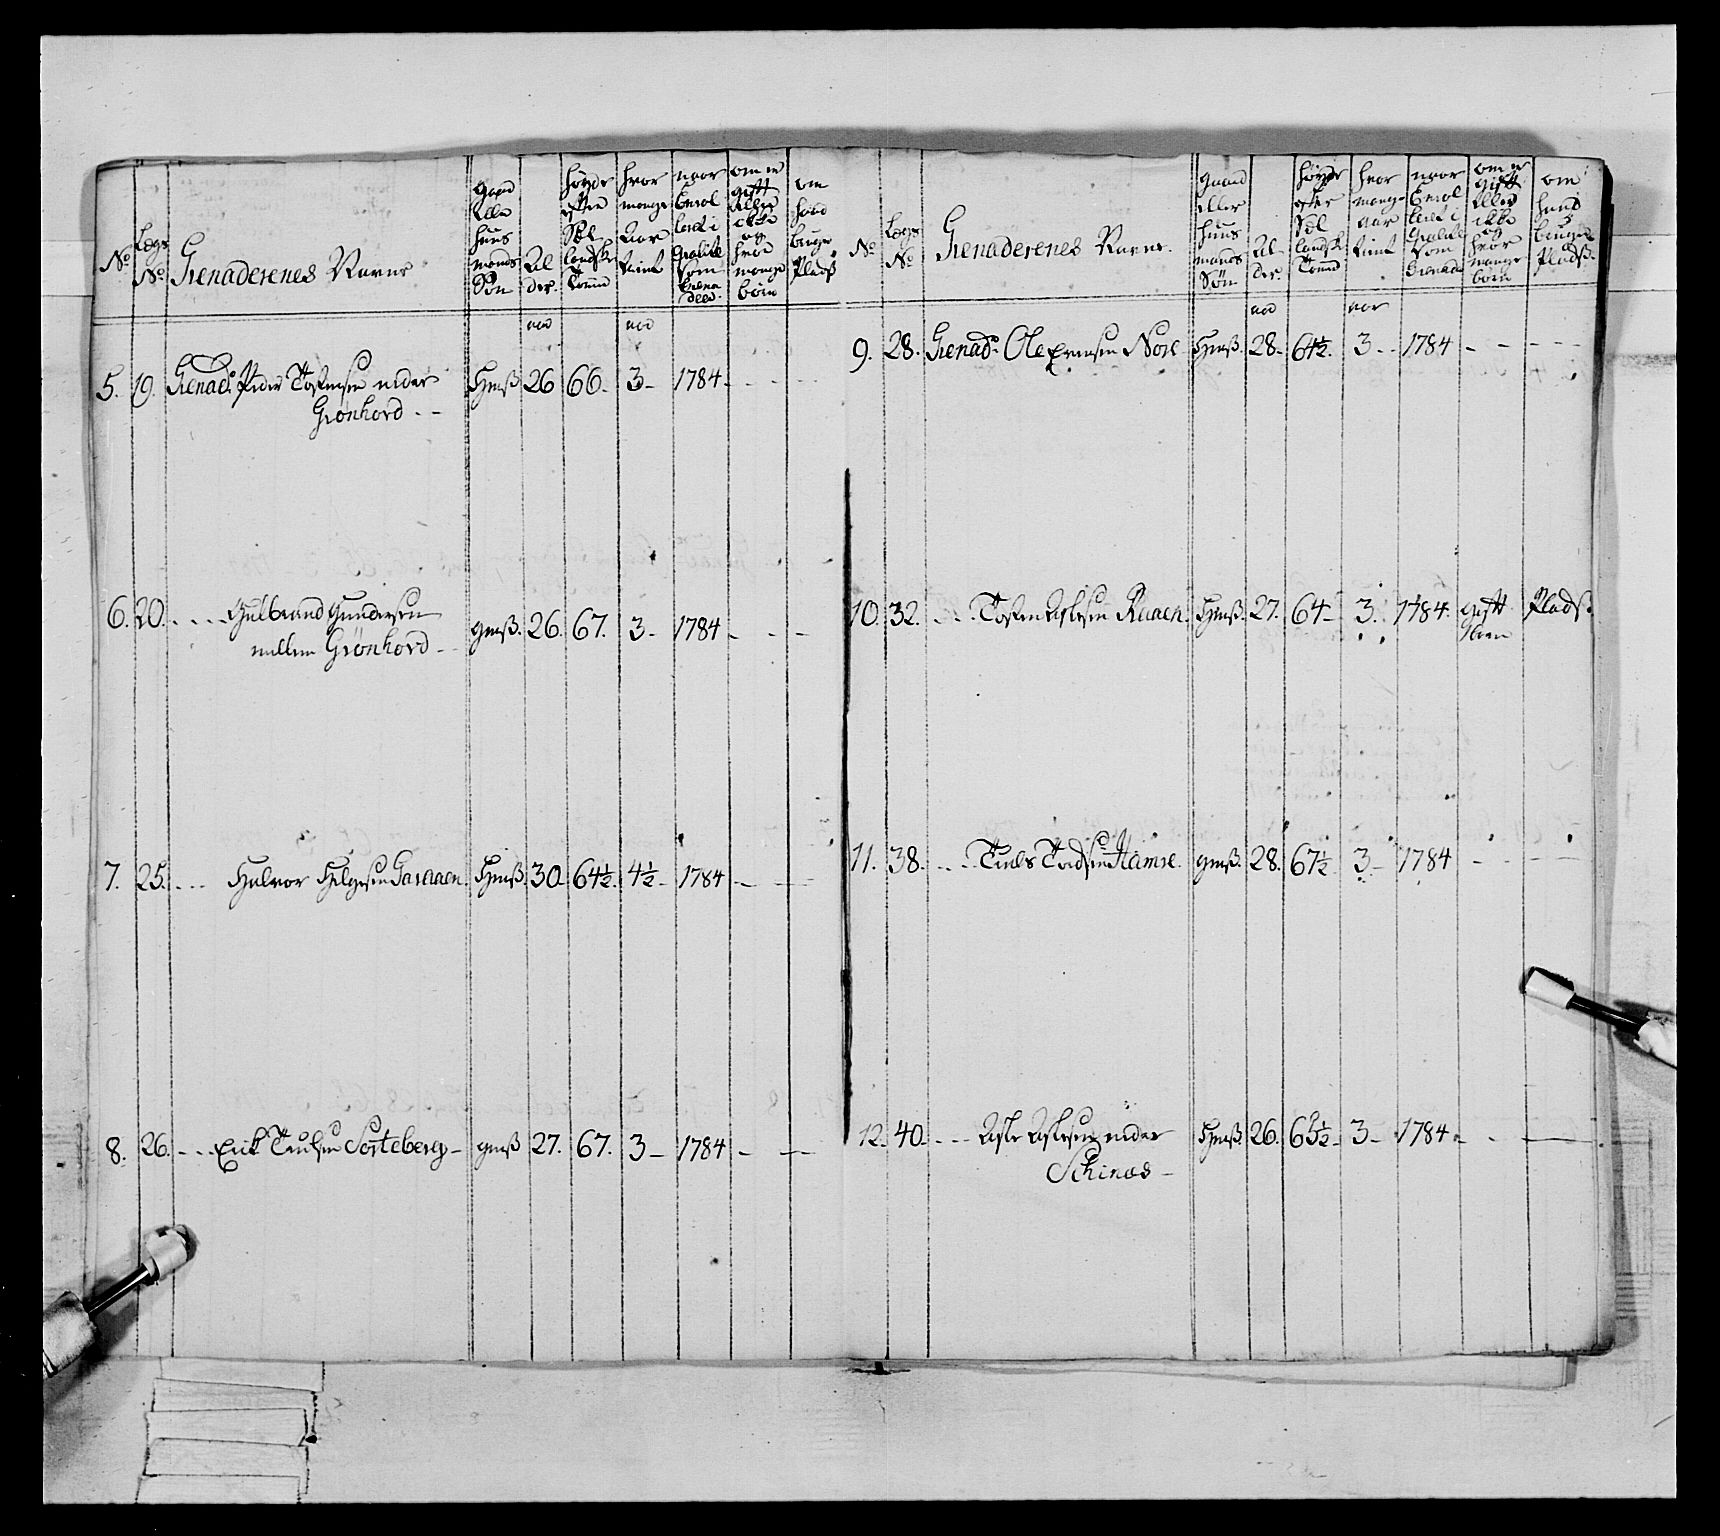 No
Lægs No
Grenaderenes Navne
gaard eller huus mands Søn
Al der.
høyde efter Sæl landsk Tomme
hvor mange Aar tient
naar Enrol leret i Qvalité som Grena deer.
om er gift eller ikke og hvor mange børn
om hand bruger Plads
aar
aar
5. 19. Grenadr. Peder Tostensen neder Hmß. 26 66 3 1784
Grønhovd
6. 20. Gulbrand Gundersen gmß. 26. 67. 3 1784
mellem Grønhovd
7. 25. Halvor Helgesen Garnaaen Hmß. 30 64½. 4½ 1784
8. 26. Erik Truelsen Sorteberg gmß 27. 67. 3 1784
No
Lægs No
Grenaderenes Navne.
gaard eller huus mands Søn
Al der.
høyde efter Sæl landsk Tomme
hvor mange aar tient
naar Enrol leret i Qvalité som Grenad
om er gift eller ikke og hvor mange børn
om hand bruger Plads.
aar
aar
9. 28. Grenadr. Ole Evensen Nore Hmß. 28 64½. 3 1784
10. 32. Tosten Aslesen Ruaen Hmß. 27. 64 3 1784. gift Plads.
11. 38. Truls Tordsen Hamre. gmß. 28. 67½ 3 1784
12. 40. Asle Aslesen neder Hmß. 26. 63½ 3 1784
Schinæs